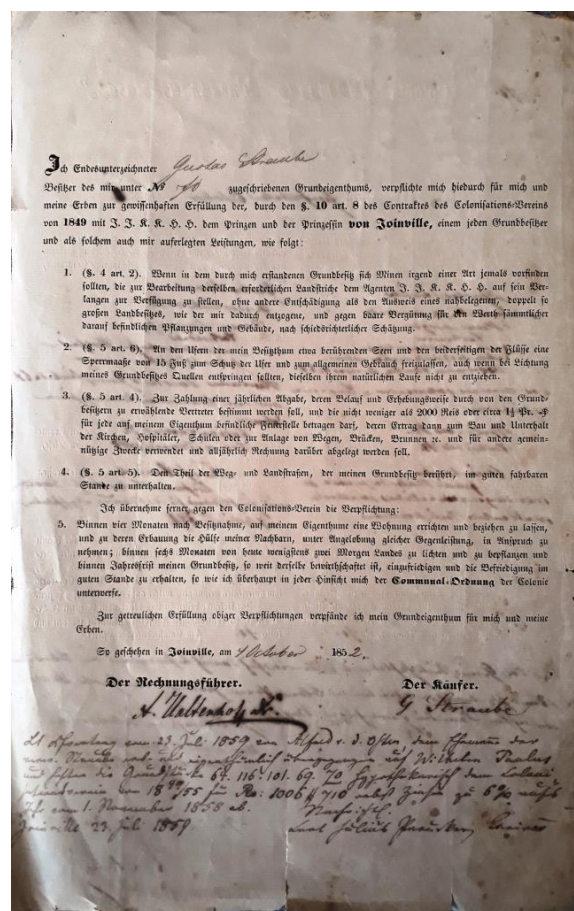 Ich Endesunterzeichneter Gustav Straube
Besitzer des mir unter No 70 zugeschriebenen Grundeigenthums, verpflichte mich hiedurch für mich und
meine Erben zur gewissenhaften Erfüllung der, durch den §. 10 art. 8 des Contractes des Colonisations-Vereins
von 1849 mit J. J. K. K. H. H. dem Prinzen und der Prinzessin von Joinville, einem jeden Grundbesitzer
und als solchem auch mir auferlegten Leistungen, wie folgt:
1. (§. 4 art. 2). Wenn in dem durch mich erstandenen Grundbesitz sich Minen irgend einer Art jemals vorfinden
sollten, die zur Bearbeitung derselben erforderlichen Landstriche dem Agenten J. J. K. K. H. H. auf sein Ver-
langen zur Verfügung zu stellen, ohne andere Entschädigung als den Ausweis eines nahbelegenen, doppelt so
großen Landbesitzes, wie der mir dadurch entzogene, und gegen baare Vergütung für den Werth sämmtlicher
darauf befindlichen Pflanzungen und Gebäude, nach schiedsrichterlicher Schätzung.
2. (§. 5 art. 6). An den Ufern der mein Besitzthum etwa berührenden Seen und den beiderseitigen der Flüsse eine
Sperrmaaße von 15 Fuß zum Schutz der Ufer und zum allgemeinen Gebrauch freizulassen, auch wenn bei Lichtung
meines Grundbesitzes Quellen entspringen sollten, dieselben ihrem natürlichen Laufe nicht zu entziehen.
3. (§. 5 art. 4). Zur Zahlung einer jährlichen Abgabe, deren Belauf und Erhebungsweise durch von den Grund-
besitzern zu erwählende Vertreter bestimmt werden soll, und die nicht weniger als 2000 Reis oder circa 1½ Pr. ₰
für jede auf meinem Eigenthum befindliche Feuerstelle betragen darf, deren Ertrag dann zum Bau und Unterhalt
der Kirchen, Hospitäler, Schulen oder zur Anlage von Wegen, Brücken, Brunnen &c. und für andere gemein-
nützige Zwecke verwendet und alljährlich Rechnung darüber abgelegt werden soll.
4. (§. 5 art. 5). Den Theil der Weg- und Landstraßen, der meinen Grundbesitz berührt, im guten fahrbaren
Stande zu unterhalten.
Ich übernehme ferner gegen den Colonisations-Verein die Verpflichtung:
5. Binnen vier Monaten nach Besitznahme, auf meinem Eigenthume eine Wohnung errichten und beziehen zu lassen,
und zu deren Erbauung die Hülfe meiner Nachbarn, unter Angelobung gleicher Gegenleistung, in Anspruch zu
nehmen; binnen sechs Monaten von heute wenigstens zwei Morgen Landes zu lichten und zu bepflanzen und
binnen Jahresfrist meinen Grundbesitz, so weit derselbe bewirthschaftet ist, einzufriedigen und die Befriedigung im
guten Stande zu erhalten, so wie ich überhaupt in jeder Hinsicht mich der Communal-Ordnung der Colonie
unterwerfe.
Zur getreulichen Erfüllung obiger Verpflichtungen verpfände ich mein Grundeigenthum für mich und meine
Erben.
So geschehen in Joinville, am 4 October 1852.
Der Rechnungsführer. Der Käufer.
A. Haltenhoff G Straube
23. Juli 1859 von Alfred v. d. Osten dem
auf Wilhelm Paulus
und die Grundstücke 67. 116. 101. 69. 70 hypothekarisch dem
für Rs: 1006 $ 710 nebst Zinsen zu 6%
1. November 1858
Joinville 23. Juli 1859 Julius